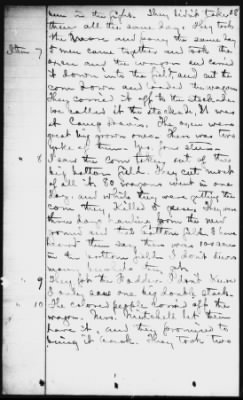 men in the fights. They didn't take
them all the same day. They took
the and same day
& men came together and took the
oxen and the wagon and carried
it down into the field, and cut the
corn down and loaded the wagon
They carried it off to the stockade
we called it the stockade. It was
at Camp Davis. The oxen were
great big grown ones. There was two
yoke of them.
Item 7
8 I saw the corn taken out of the
big bottom field. They cut most
of all it. 80 wagons went in one
day. and while they were getting the
corn they killed oxen. They was
three days hauling from the
round and that bottom field. I have
heard them say there was 100 acres
in the bottom field. I don't know
many bushels they got.
9 They got the fodder. I don't know
I only saw one big double stack.
10 The colored people drove off the
wagon. Mrs. Mitchell let them
have it, and they promised to
bring it back. They took two